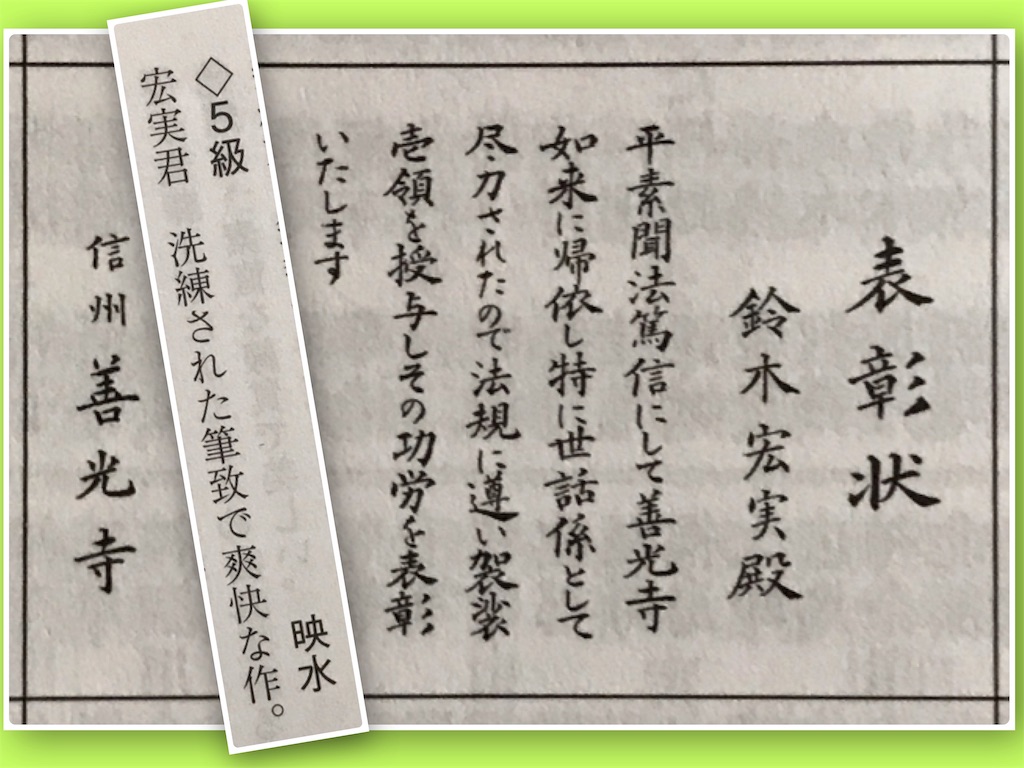 表彰状
鈴木宏実殿
平素聞法篤信にして善光寺
如来に帰依し特に世話係として
尽力されたので法規に遵い袈裟
壱領を授与しその功労を表彰
いたします
信州善光寺
◇5級 映水
宏実君 洗練された筆致で爽快な作。